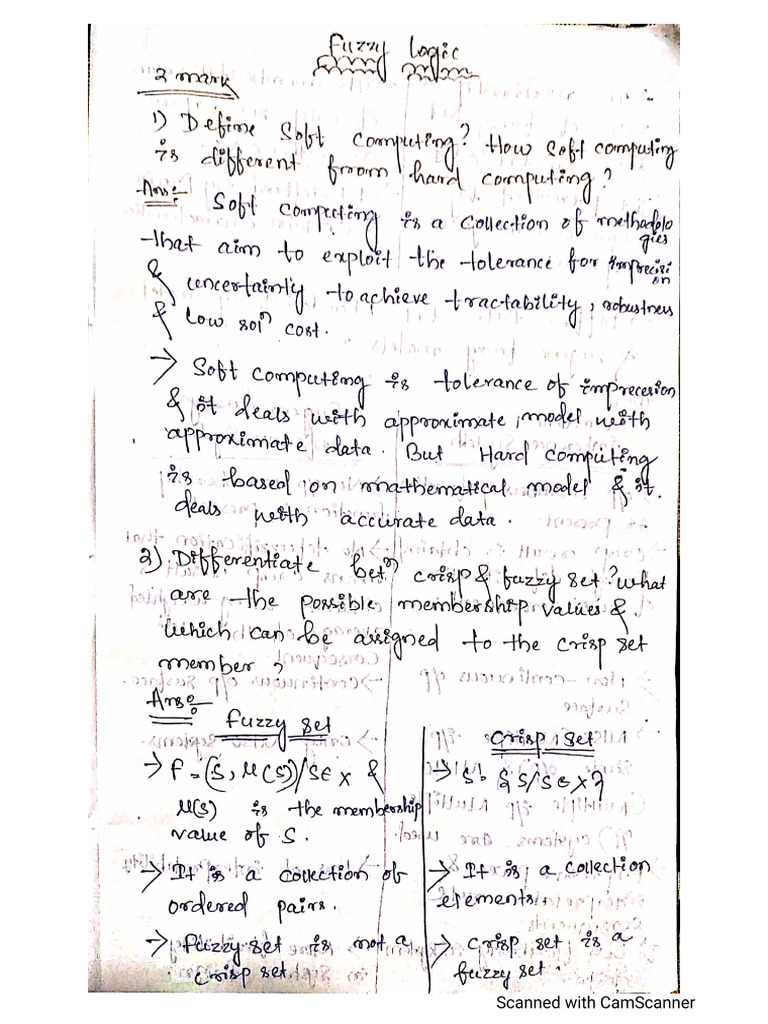 Fuzzy Logic
2 mark
1) Define Soft computing? How Soft computing
is different from hard computing?
Ans:- Soft computing is a collection of methodolo
gies
that aim to exploit the tolerance for imprecisi
on
& uncertainty to achieve tractability, robustness
& low solⁿ cost.
→ Soft computing is tolerance of imprecesion
& it deals with approximate model with
approximate data. But Hard computing
is based on mathematical model & it
deals with accurate data.
2) Differentiate betⁿ crisp & fuzzy set? what
are the possible membership values &
which can be assigned to the crisp set
member?
Ans:-
Fuzzy set
→ F = (S, μ(S))/S∈ x &
μ(S) is the membership
value of S.
→ It is a collection of
ordered pairs.
→ Fuzzy set is not a
crisp set.
Crisp set
→ S = {S/S∈x}
→ It is a collection
elements.
→ Crisp set is a
fuzzy set.
Scanned with CamScanner